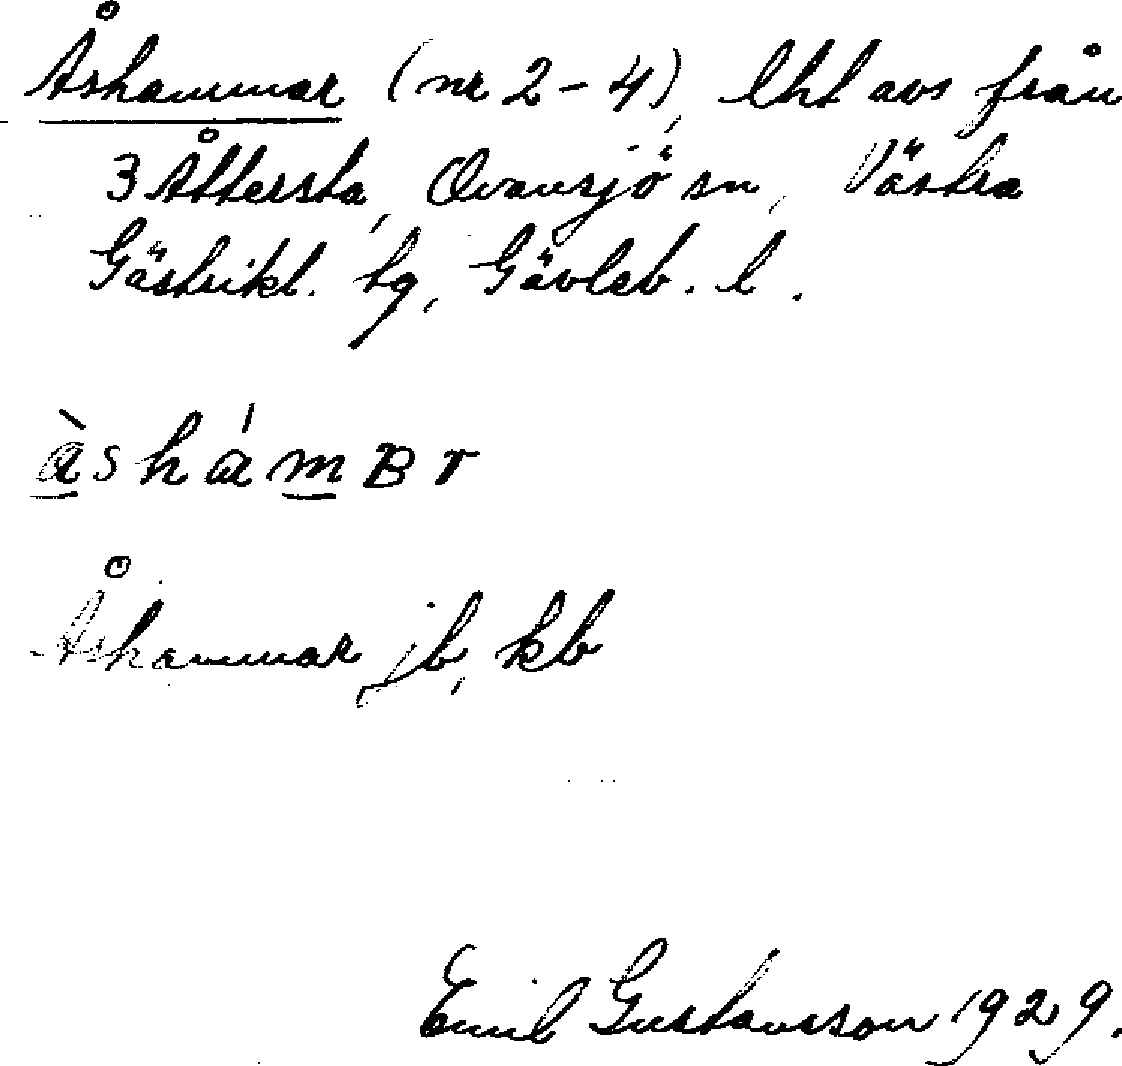 Åshammar (nr 2-4), lht avs från
3 Åttersta, Ovansjö sn, Västra
Gästrikl. tg, Gävleb. l.
àshámʙr
Åshammar jb, kb
Emil Gustavsson 1929.